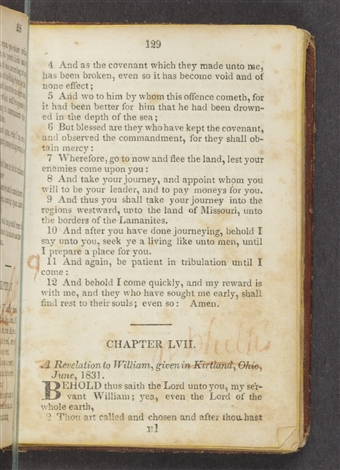 129
4 And as the covenant which they made unto me,
has been broken, even so it has become void and of
none effect;
5 And wo to him by whom this offence cometh, for
it had been better for him that he had been drown-
ed in the depth of the sea;
6 But blessed are they who have kept the covenant,
and observed the commandment, for they shall ob-
tain mercy:
7 Wherefore, go to now and flee the land, lest your
enemies come upon you:
8 And take your journey, and appoint whom you
will to be your leader, and to pay moneys for you.
9 And thus you shall take your journey into the
regions westward, unto the land of Missouri, unto
the borders of the Lamanites.
10 And after you have done journeying, behold I
say unto you, seek ye a living like unto men, until
I prepare a place for you.
11 And again, be patient in tribulation until I
come:
12 And behold I come quickly, and my reward is
with me, and they who have sought me early, shall
find rest to their souls; even so: Amen.
CHAPTER LVII.
A Revelation to William, given in Kirtland, Ohio,
June, 1831.
BEHOLD thus saith the Lord unto you, my ser-
vant William; yea, even the Lord of the
whole earth,
2 Thou art called and chosen and after thou hast